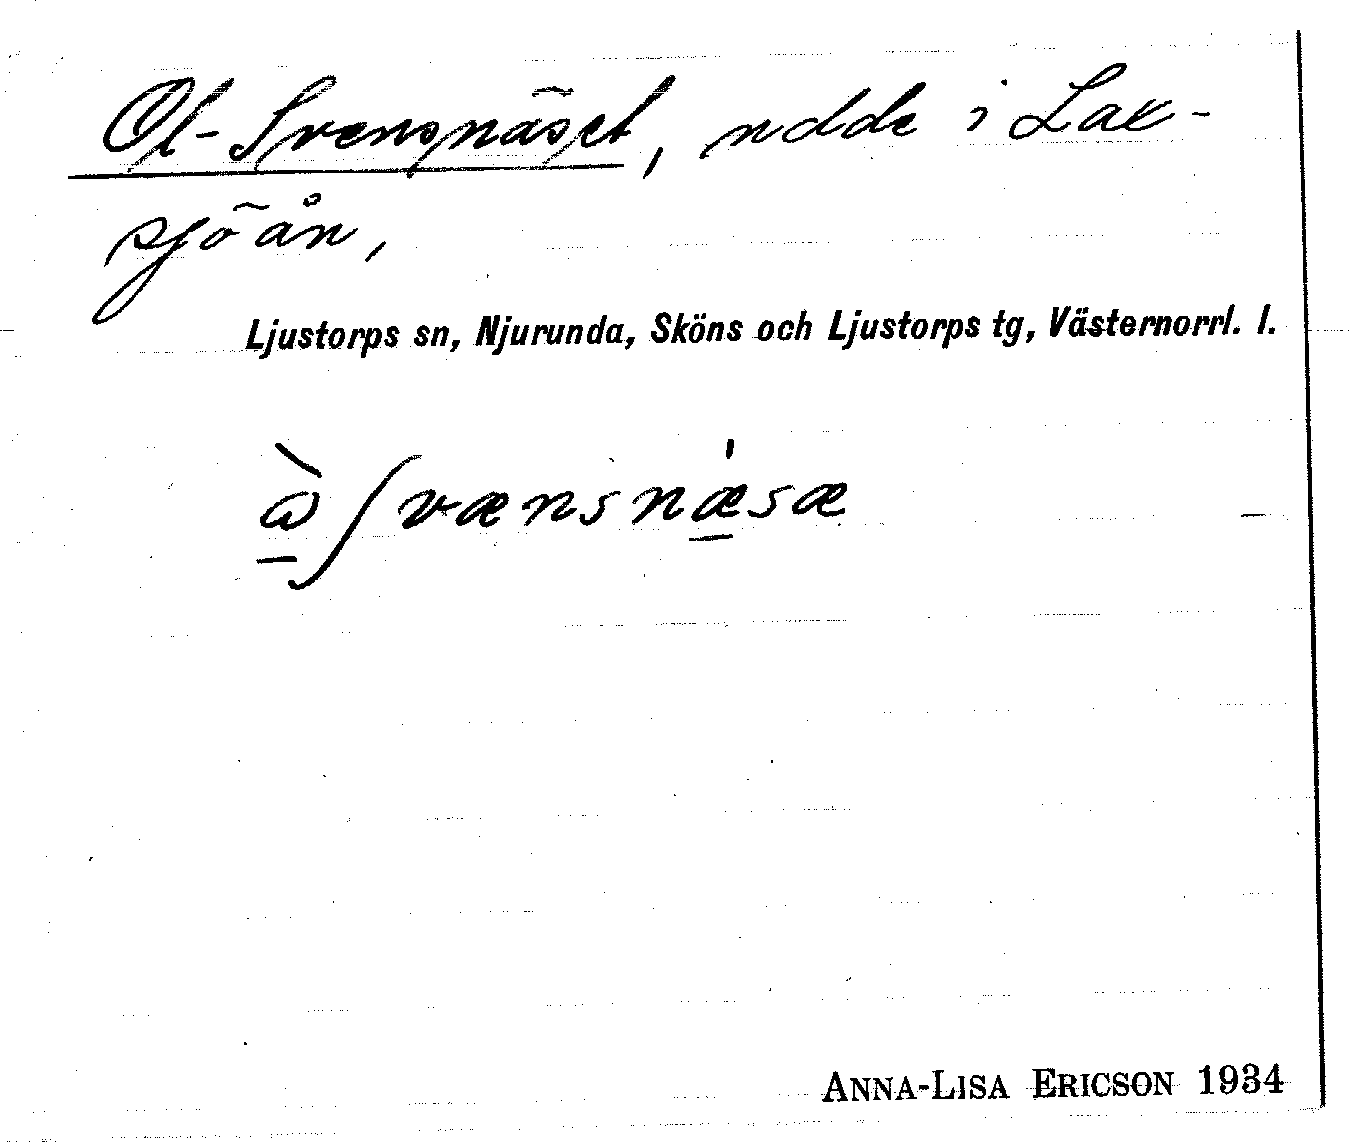 Ol-Svensnäset, udde i Lax-
sjöån,
Ljustorps sn, Njurunda, Sköns och Ljustorps tg, Västernorrl. l.
ANNA-LISA ERICSON 1934